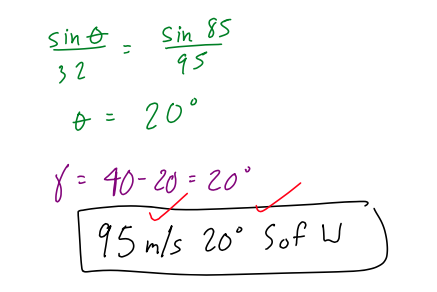 sin θ / 32 = sin 85 / 95
θ = 20°
γ = 40 - 20 = 20°
95 m/s 20° S of W